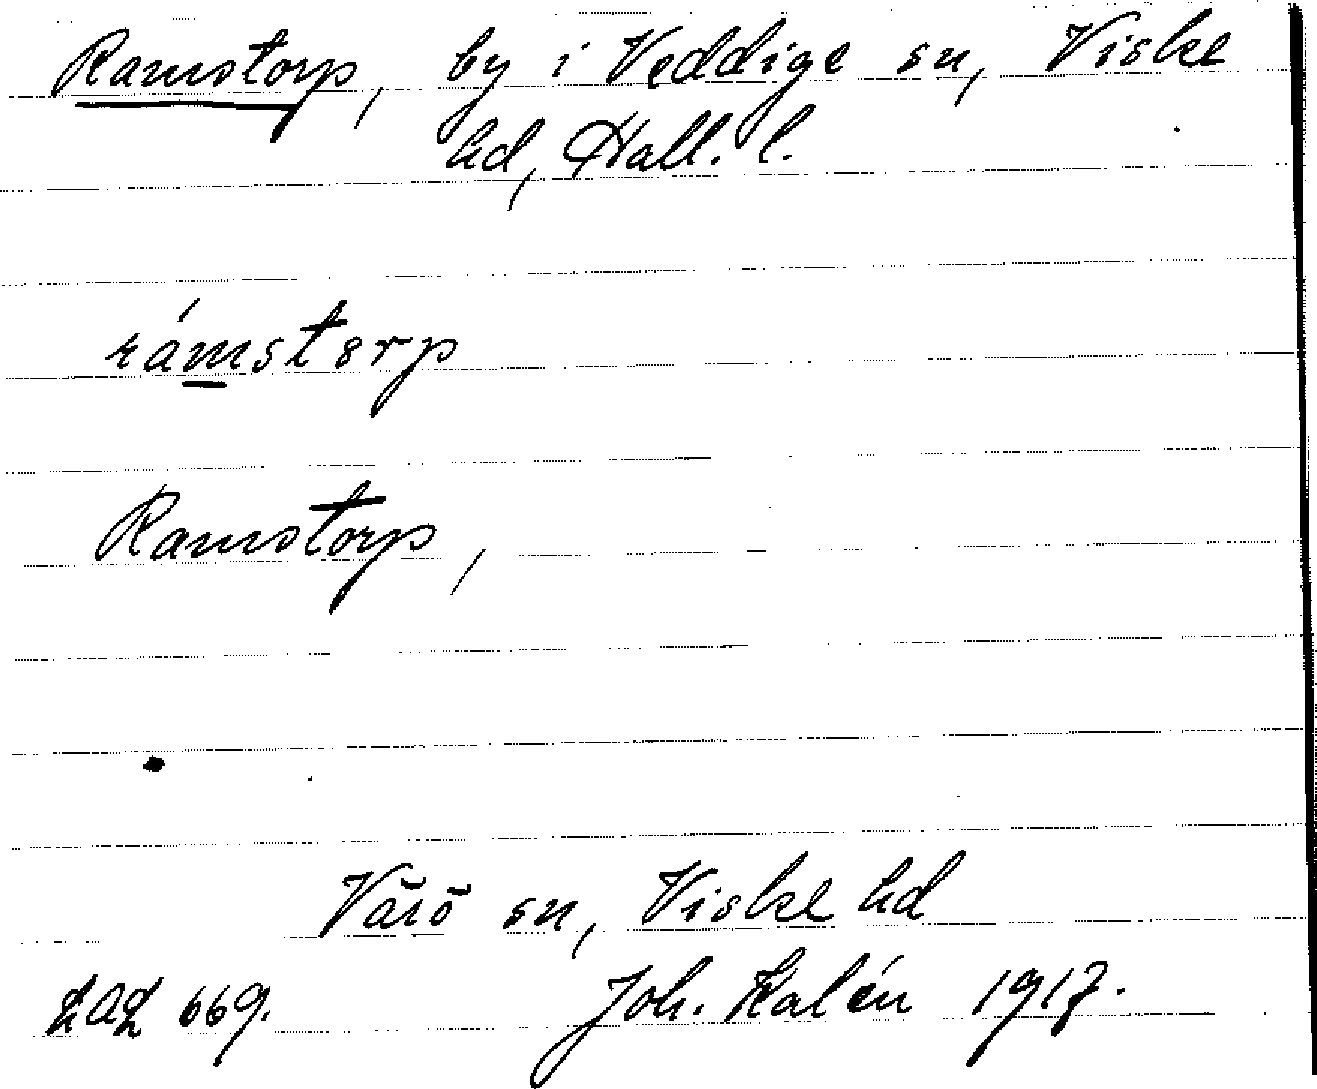 Ramstorp, by i Veddige sn, Viske
hd, Hall. l.
rámstorp
Ramstorp,
Värö sn, Viske hd
LAL 669. Joh. Kalén 1917.